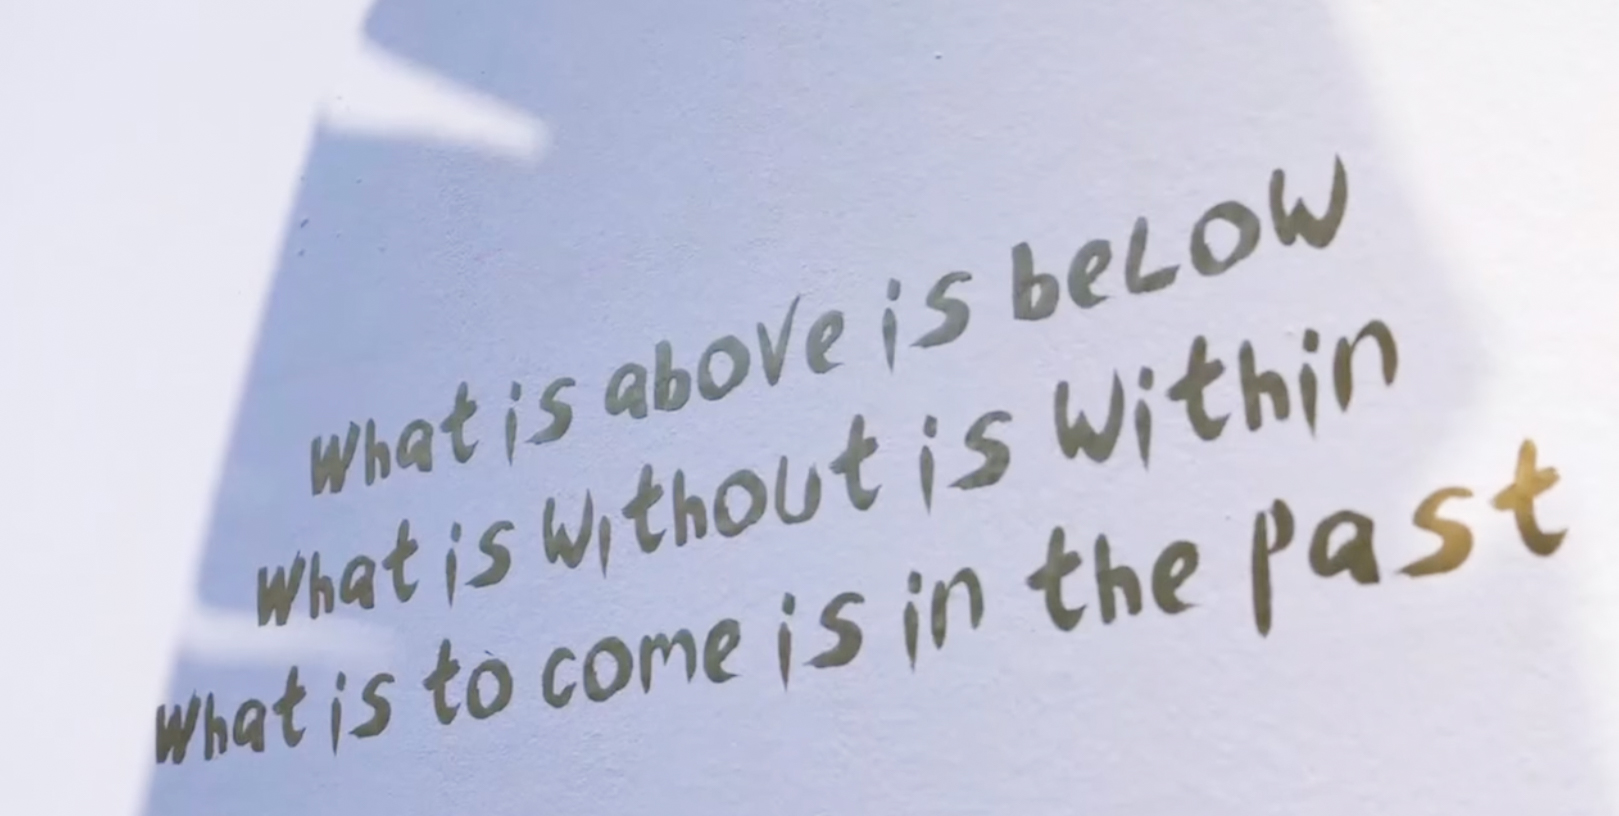 What is above is below
What is without is within
What is to come is in the past